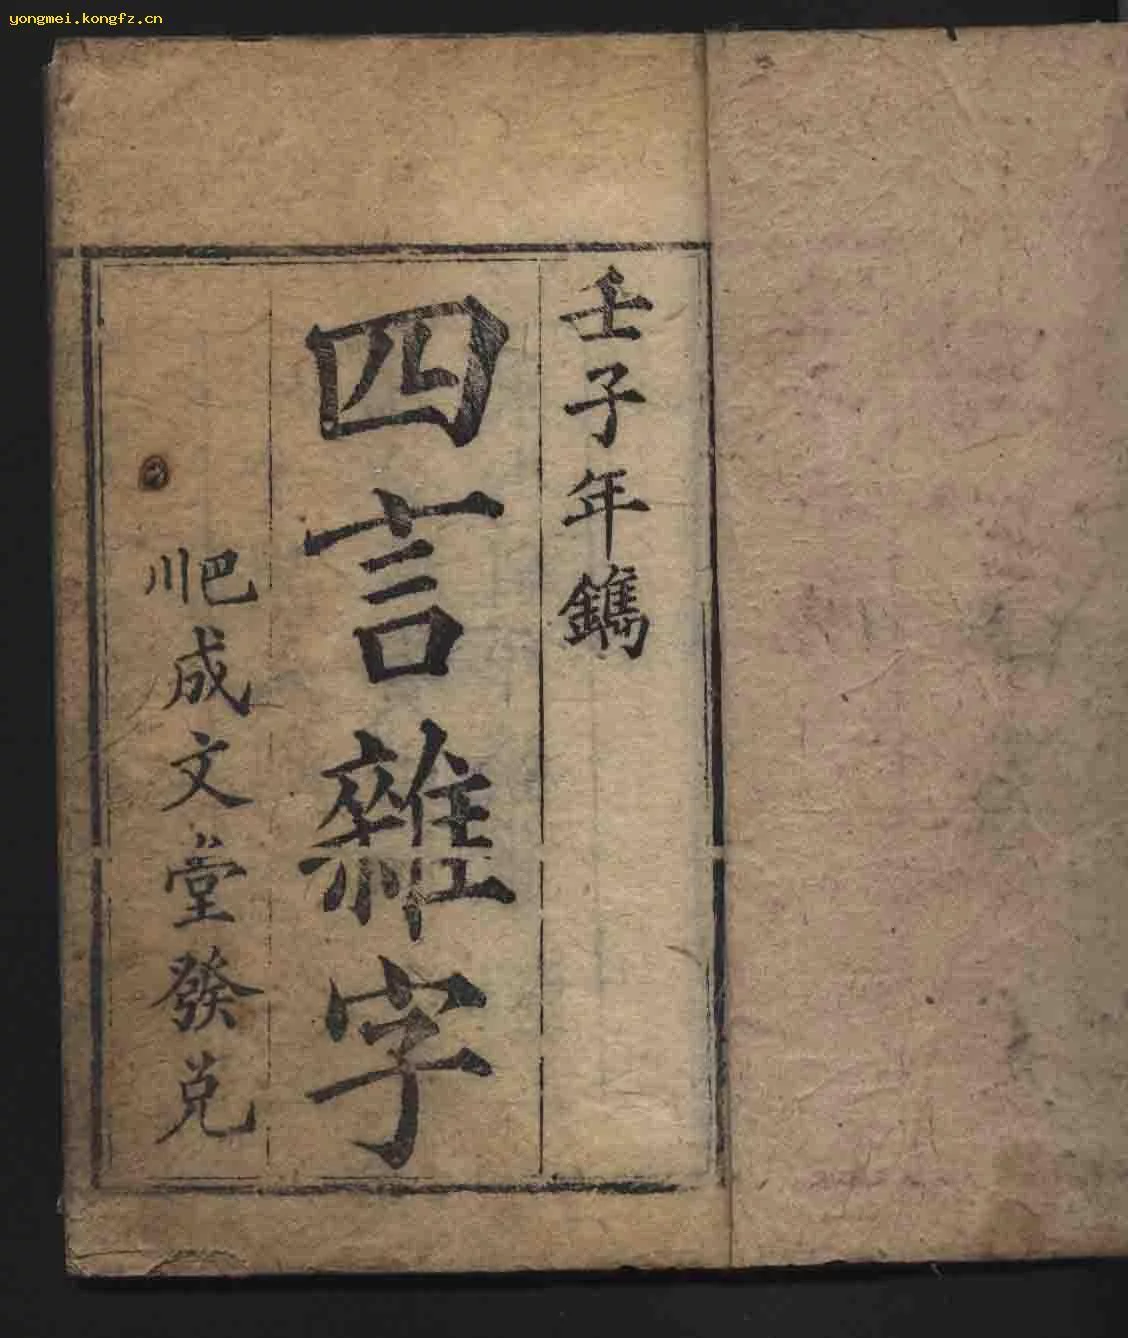 yongmei.kongfz.cn
壬子年鐫
四言雜字
巴川成文堂發兑